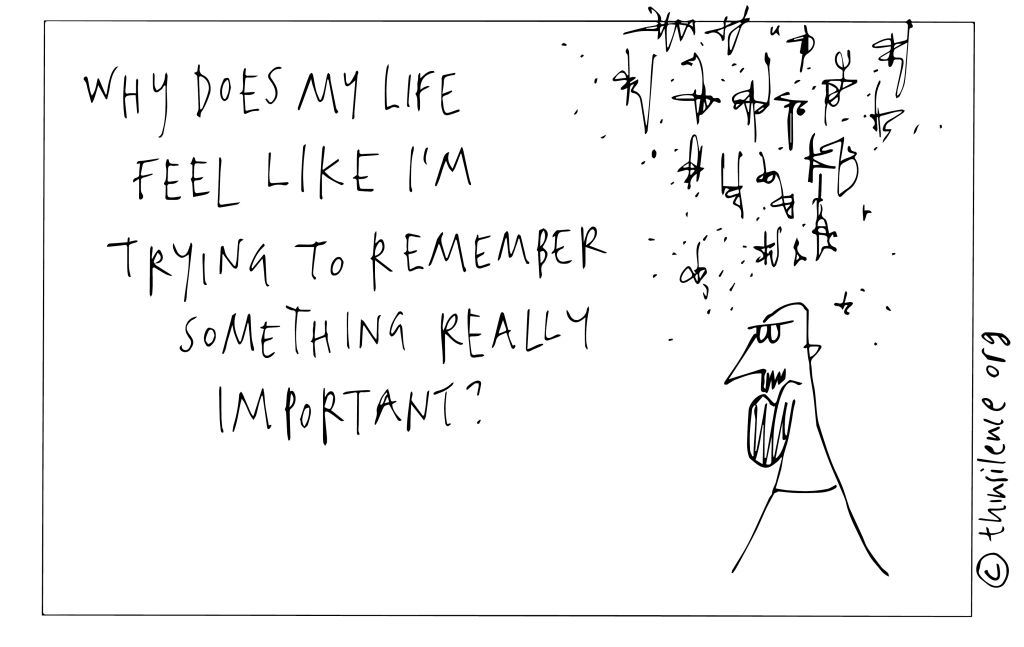 WHY DOES MY LIFE
FEEL LIKE I'M
TRYING TO REMEMBER
SOMETHING REALLY
IMPORTANT?
© thinsilence org